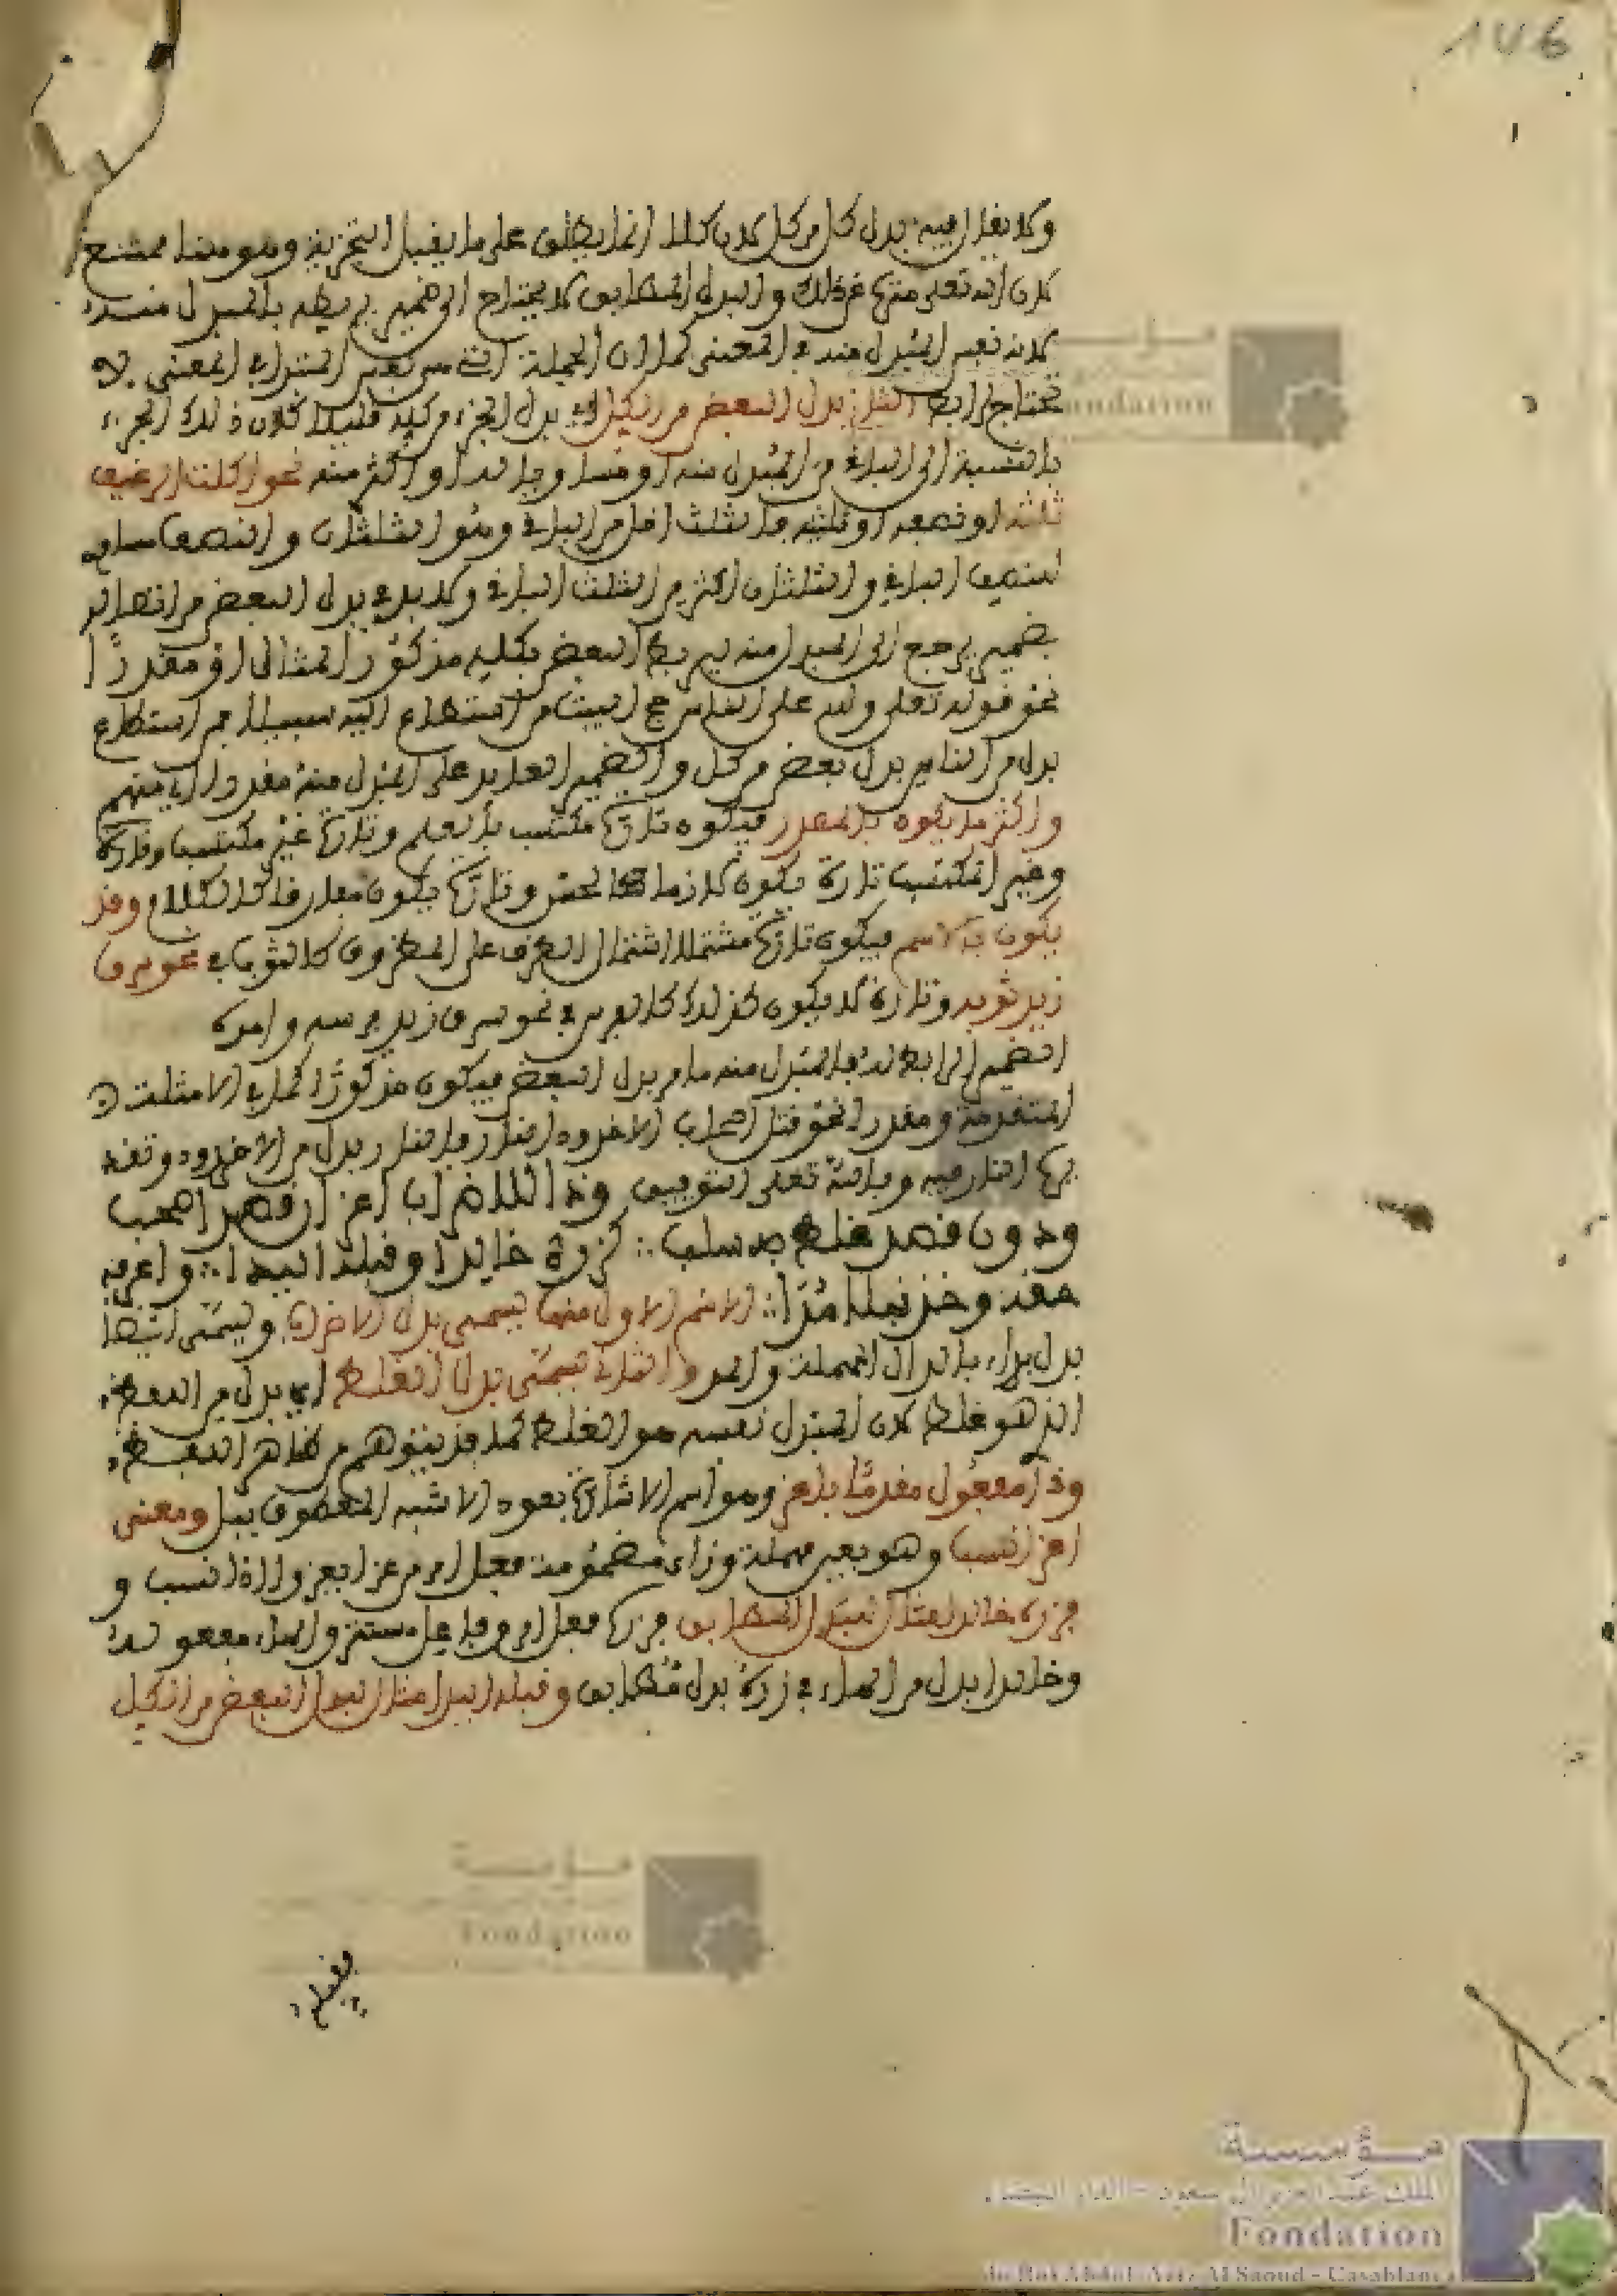 ١٧6
ولا يقال فيه بدل كل من كل لان كلا انما يطلق على ما يقبل التجزية وهو هنا ممتنع
لان الله تعلى منزه عن ذلك والبدل المطابق لا يحتاج الى ضمير يربطه بالمبدل منه
لانه نفس المبدل منه في المعنى كما ان الجملة التي هي نفس المبتدا في المعنى لا
تحتاج لرابط الثاني بدل البعض من الكل اي بدل الجزء من كله قليلا كان ذلك الجزء
بالنسبة الى الباقي من المبدل منه او مساويا له او اكثر منه نحو اكلت الرغيف
ثلثه او نصفه او ثلثيه فالثلث اقل من الباقي وهو الثلثان والنصف مساو
للنصف الباقي والثلثان اكثر من الثلث الباقي ولا بد في بدل البعض من اتصاله
بضمير يرجع الى المبدل منه ليربط البعض بكله مذكورا كالمثال او مقدرا
نحو قوله تعلى ولله على الناس حج البيت من استطاع اليه سبيلا فمن استطاع
بدل من الناس بدل بعض من كل والضمير العايد على المبدل منه مقدر اي منهم
واكثر ما يكون بالمصدر فيكون تارة مكتسب كالعلم وتارة غير مكتسب
وغير المكتسب تارة يكون لازما كالحسن وتارة يكون مفارقا كالكلام وقد
يكون بالاسم فيكون تارة مشتملا اشتمال الظرف على المظروف كالثوب في نحو سرق
زيد ثوبه وتارة لا يكون كذلك كالفرس في نحو سرق زيد فرسه وامر
الضمير الرابط له بالمبدل منه ما مر في بدل البعض فيكون مذكورا كما في الامثلة
المتقدمة ومقدرا نحو قتل اصحاب الاخدود النار فالنار بدل من الاخدود وتقديرها
النار فيه وبالله تعلى التوفيق وذا للاضراب اعز ان قصدا صحب
ودون قصد غلط به سلب ∴ كزره خالدا وقبله اليدا ∴ واعرفه
حقه وخذ نبلا مدا ∴ الاسم الاول منهما يسمى بدل الاضراب ويسمى ايضا
بدل بداء بالدال المهملة والمد والثاني يسمى بدل الغلط اي بدل من اللفظ
الذي هو غلط لان المبدل نفسه هو الغلط كما قد يتوهم من ظاهر اللفظ
وذا مفعول مقدم باعز وهو اسم الاشارة يعود الى شبه المعطوف ببل ومعنى
اعز انسب وهو بعين مهملة وزاي مضمومة فعل امر من عزا يعزو اذا نسب و
فزره خالدا مثال لبدل المطابق فزره فعل امر وفاعل مستتر والهاء مفعوله
وخالدا بدل من الهاء في زره بدل مطابق وقبله اليدا مثال لبدل البعض من الكل
فقبله
مؤسسة
Fondation
مؤسسة
Fondation
مؤسسة
الملك عبد العزيز آل سعود - الدار البيضاء
Fondation
du Roi Abdul-Aziz Al Saoud - Casablanca